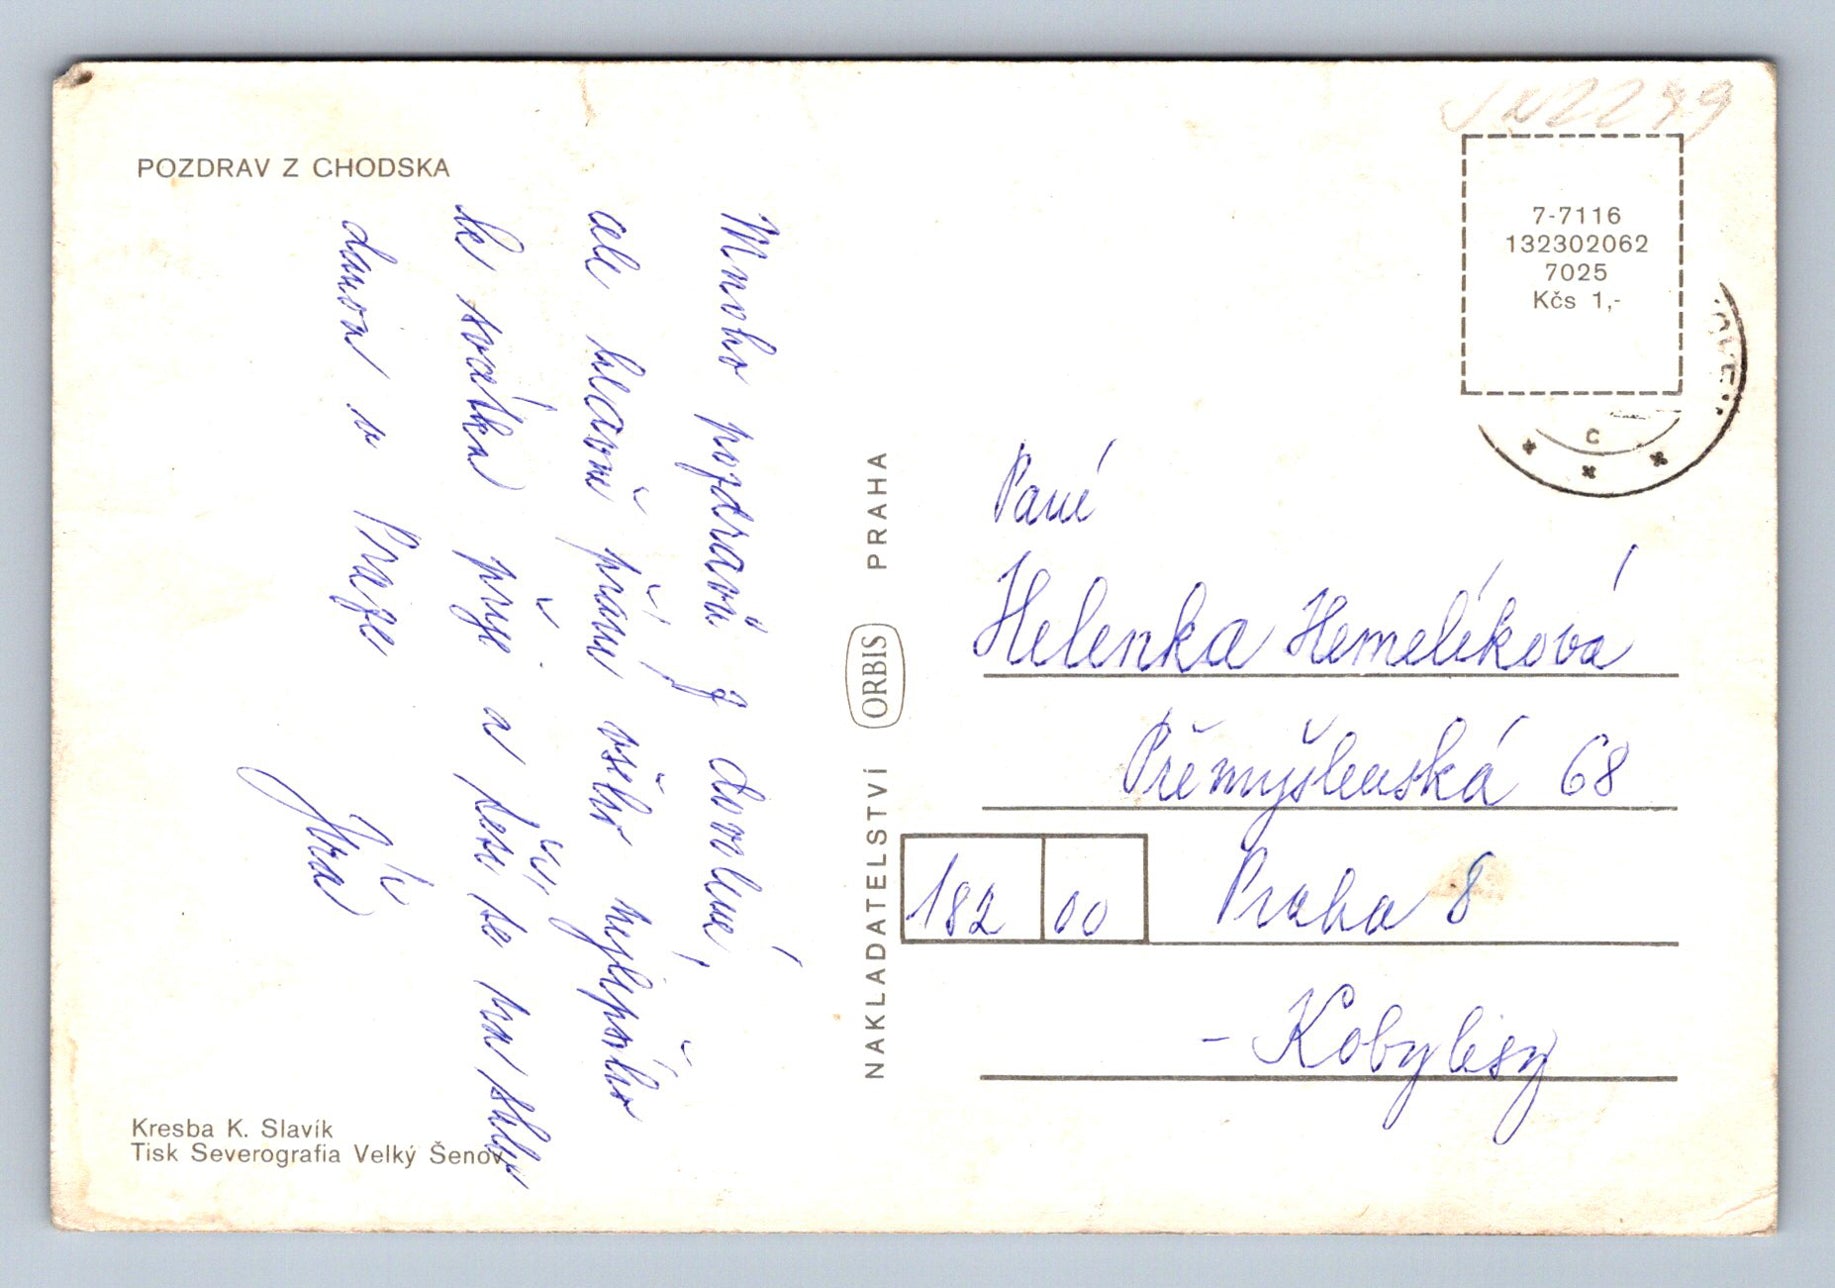 POZDRAV Z CHODSKA
Mnoho pozdravů z dovolené,
ale hlavně přání všeho nejlepšího
k svátku přeje a těší se na shle
danou v Praze
Jiřa
Kresba K. Slavík
Tisk Severografia Velký Šenov
NAKLADATELSTVÍ ORBIS PRAHA
7-7116
132302062
7025
Kčs 1,-
C
Paní
Helenka Hemelíková
Přemyšlenská 68
182 00 Praha 8
- Kobylisy